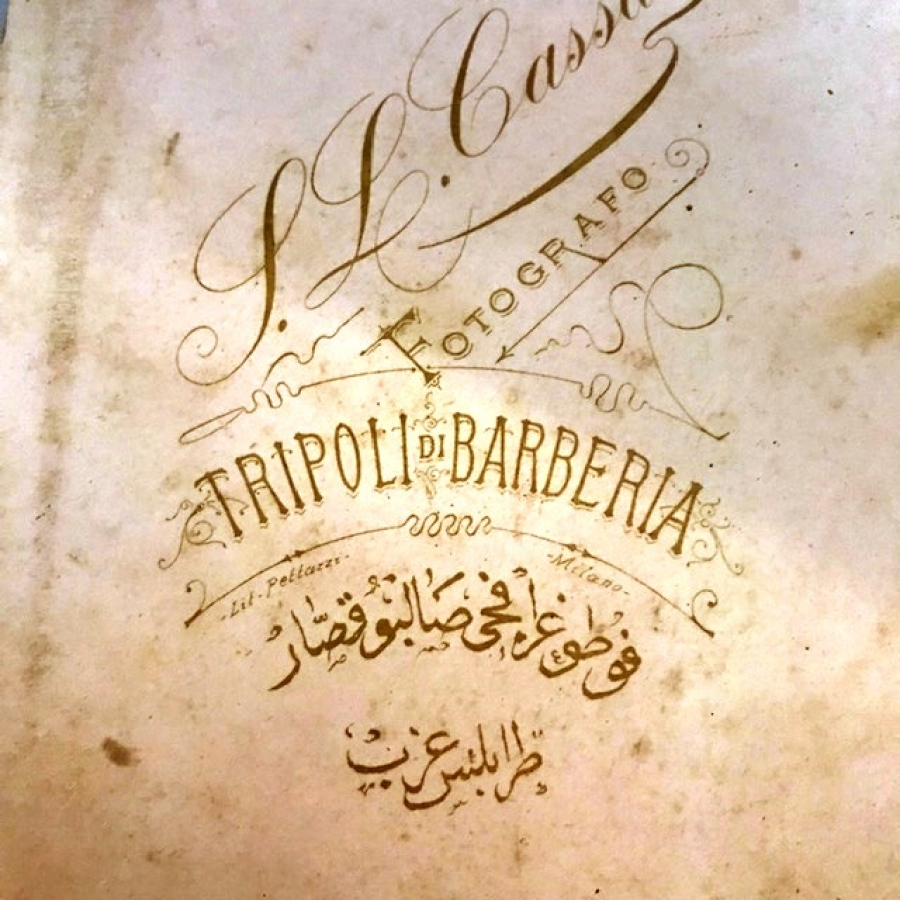 S. L. Cassa
FOTOGRAFO
TRIPOLI DI BARBERIA
-Lit. Pellazzi- -Milano-
فوطوغرافجى صالبتو قصّار
طرابلس غرب